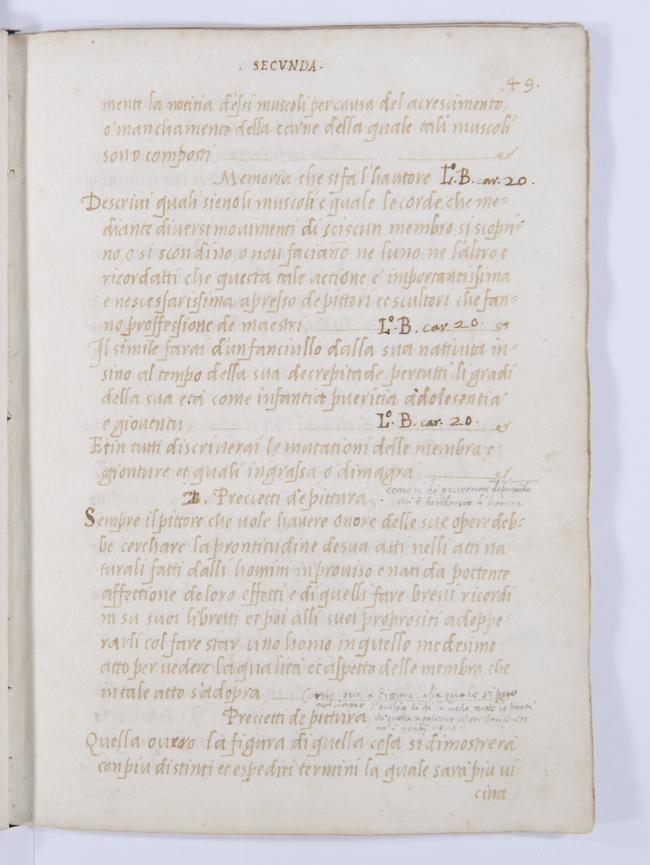 . SECVNDA .
49.
mente la notitia d'essi muscoli per causa del acrescimento,
o' manchamento della carne della quale tali muscoli
sono composti
Memoria che si fa l'hautore Lº. B. car. 20.
Descrivi quali sieno li muscoli e quale le corde, che me=
diante diversi movimenti di sciscun membro si scopri=
no, o si scondino, o non faciano ne luno ne laltro, e
ricordatti che questa tale actione e' importantissima
e nescessarissima apresso de pittori et scultori che fan=
no proffessione de maestri, Lº. B. car. 20.
Il simile farai d'un fanciullo dalla sua nativita in=
sino al tempo della sua decrepita de per tutti li gradi
della sua eta come infantia pueritia adolesentia
e gioventu, Lº. B. car. 20.
Et in tutti discriverai le mutationi delle membra e
gionture et quali ingrassa, o dimagra
Precietti de pittura
Sempre il pittore che vole havere onore delle sue opere deb=
be cerchare la prontitudine de sua atti nelli atti na=
turali fatti dalli homini inproviso e nati da pottente
affettione de loro effetti e di quelli fare brevi ricordi
in su suoi libretti et poi alli suoi proprositi adoppe=
rarli col fare star uno homo in quello medesimo
atto per vedere la qualita et aspetto delle membra che
in tale atto s'adopra
Precietti de pittura
Quella overo la figura di quella cosa si dimostrera
con piu distinti et espediti termini la quale sara piu vi=
cina